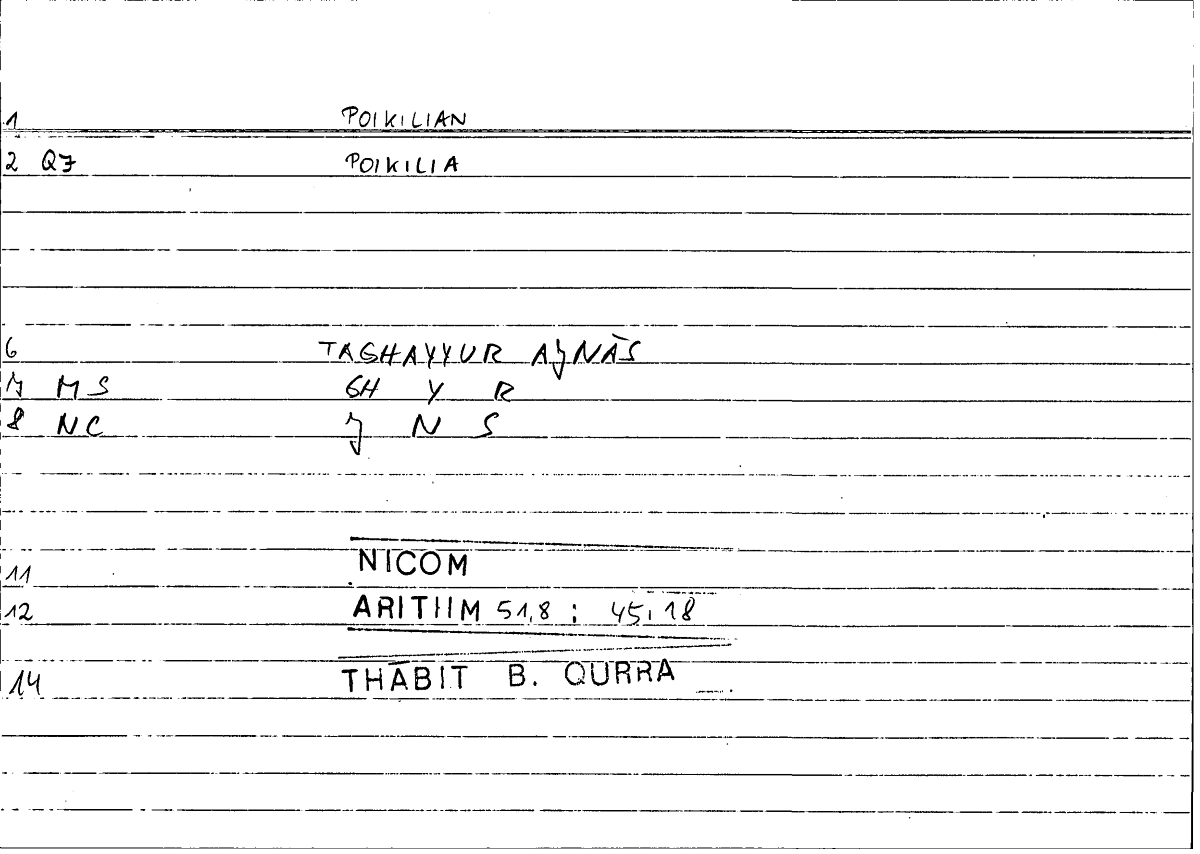 1 POIKILIAN
2 Q7 POIKILIA
6 TAGHAYYUR AJNĀS
7 MS GH Y R
8 NC J N S
11 NICOM
12 ARITHM 51,8 ; 45,18
14 THĀBIT B. QURRA